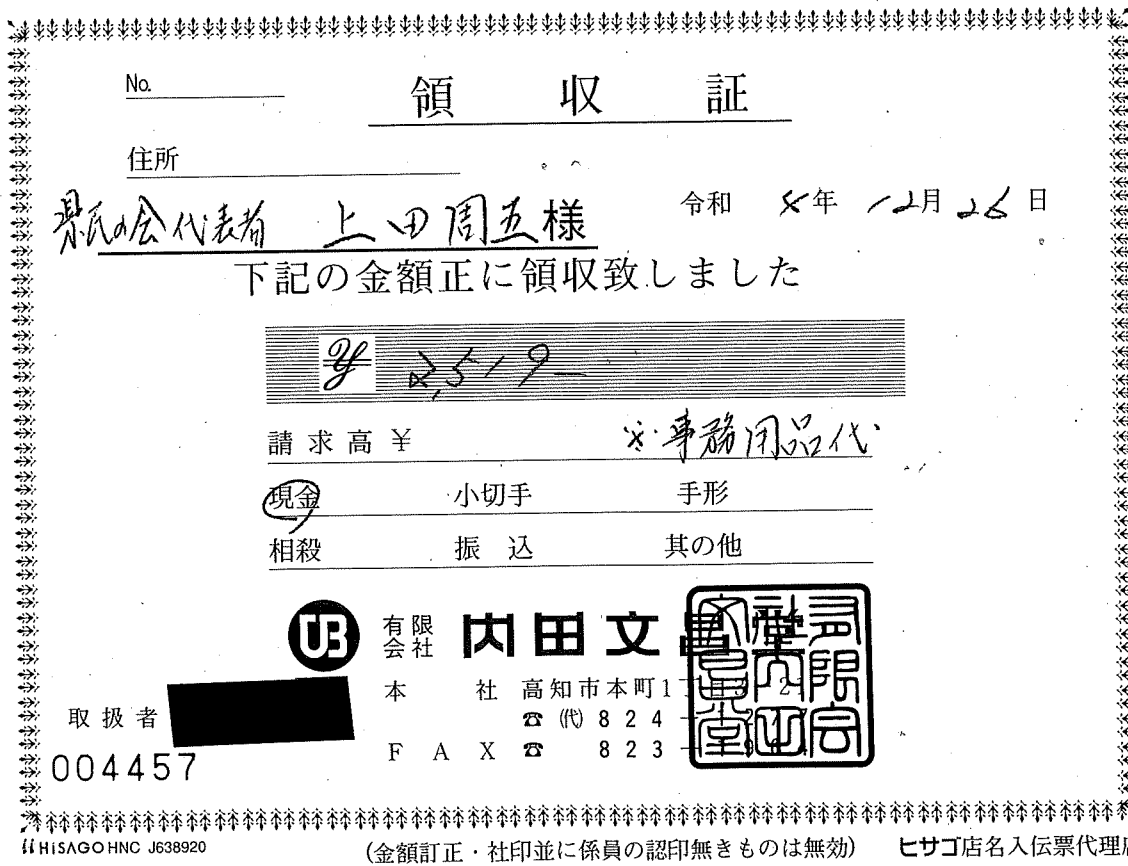 No.
領 収 証
住所
県民の会代表者 上田周五様
令和 4年 12月 26日
下記の金額正に領収致しました
¥ 2,519-
請求高¥
事務用品代
現金 小切手 手形
相殺 振込 其の他
UB 有限会社 内田文昌堂
本 社 高知市本町1丁目
☎ ㈹ 824
取扱者
FAX ☎ 823
004457
有限会社内田文昌堂
HISAGO HNC J638920 (金額訂正・社印並に係員の認印無きものは無効) ヒサゴ店名入伝票代理店